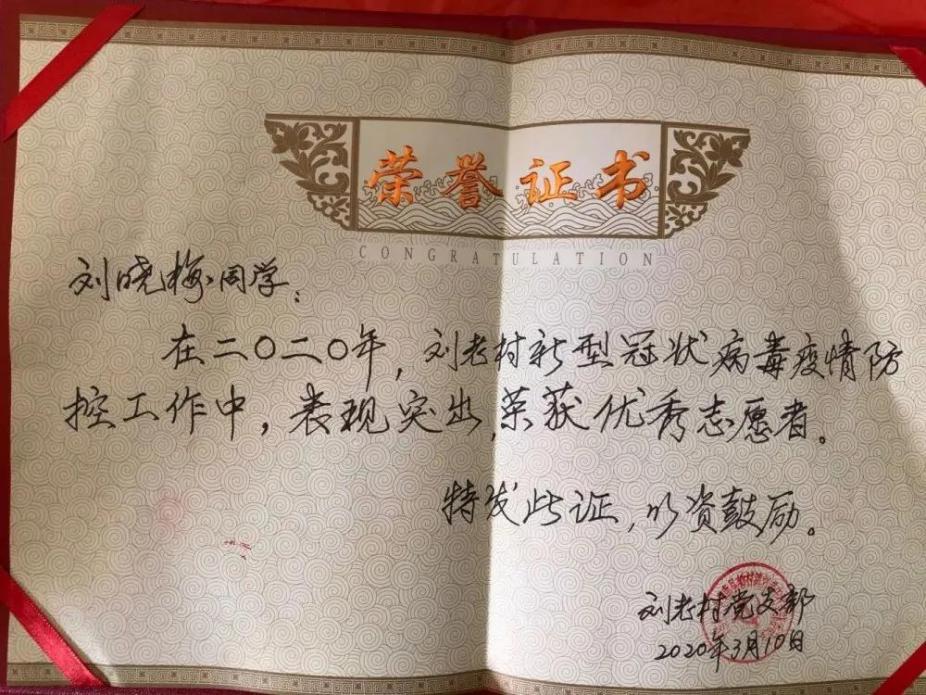 荣誉证书
CONGRATULATION
刘晓梅同学：
在二〇二〇年，刘老村新型冠状病毒疫情防
控工作中，表现突出，荣获优秀志愿者。
特发此证，以资鼓励。
刘老村党支部
2020年3月10日